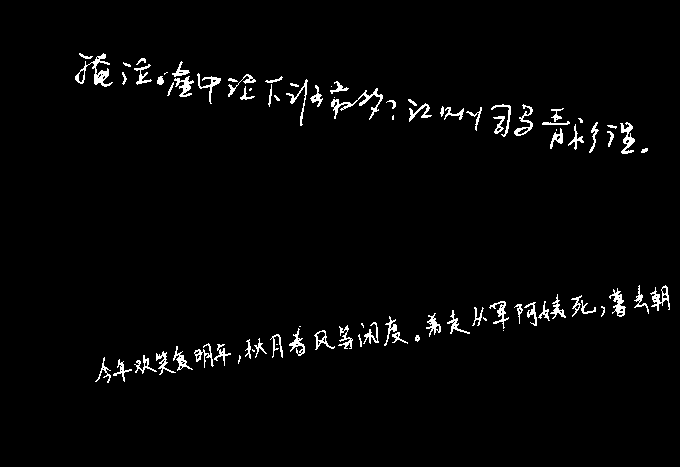 掩泣。座中泣下谁最多?江州司马青衫湿。
今年欢笑复明年,秋月春风等闲度。弟走从军阿姨死,暮去朝